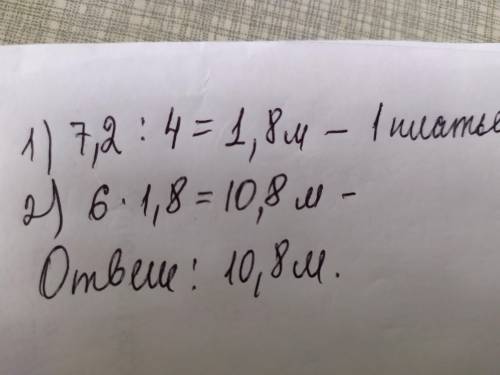 1) 7,2 : 4 = 1,8 м – 1 платье
2) 6 · 1,8 = 10,8 м –
Ответ: 10,8 м.